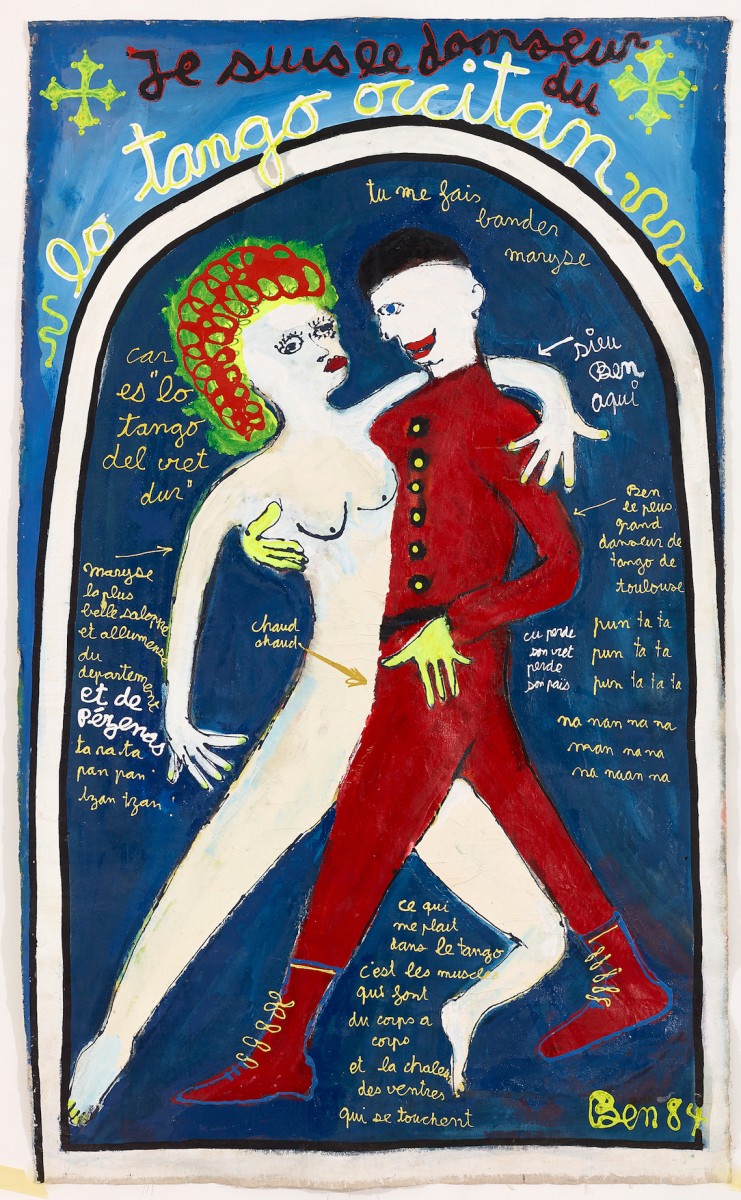 Je suis le danseur
du
lo tango occitan
tu me fais
bander
maryse
car
es "lo
tango
del vret
dur"
sieu
Ben
aqui
Ben
le plus
grand
danseur de
tango de
toulouse
maryse
la plus
belle salope
et allumeuse
du
departement
et de
Pézenas
ta ra ta
pan pan
tzan tzan
chaud
chaud
cu perde
son vret
perde
son païs
pun ta ta
pun ta ta
pun ta ta ta
na nan na na
nan na na
na naan na
ce qui
me plait
dans le tango
c'est les muscles
qui font
du corps a
corps
et la chaleu
des ventres
qui se touchent
Ben 84